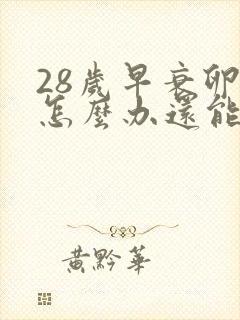 28歲早衰卵
怎麼办還能
黃黔華